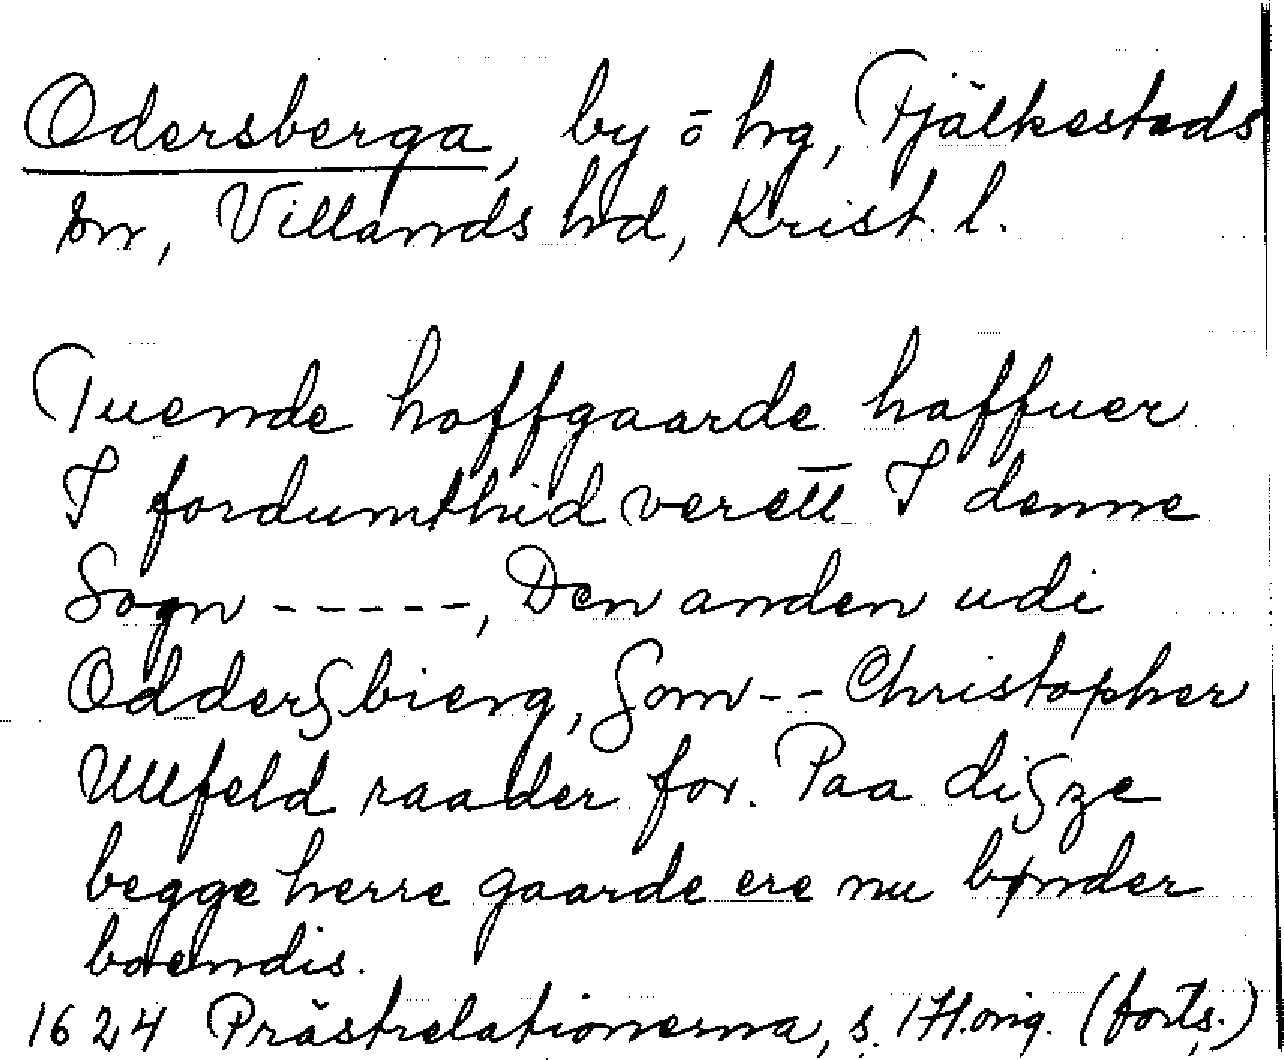 Odersberga, by ō hg, Fjälkestads
sn, Villands hd, Krist. l.
Tuende hoffgaarde haffuer
I fordumthid verett I denne
Sogn -----, Den anden udi
Oddersbierg, Som -- Christopher
Ulfeld raader for. Paa disze
begge herre gaarde ere nu bønder
boendis.
1624 Prästrelationerna, s. (forts.)